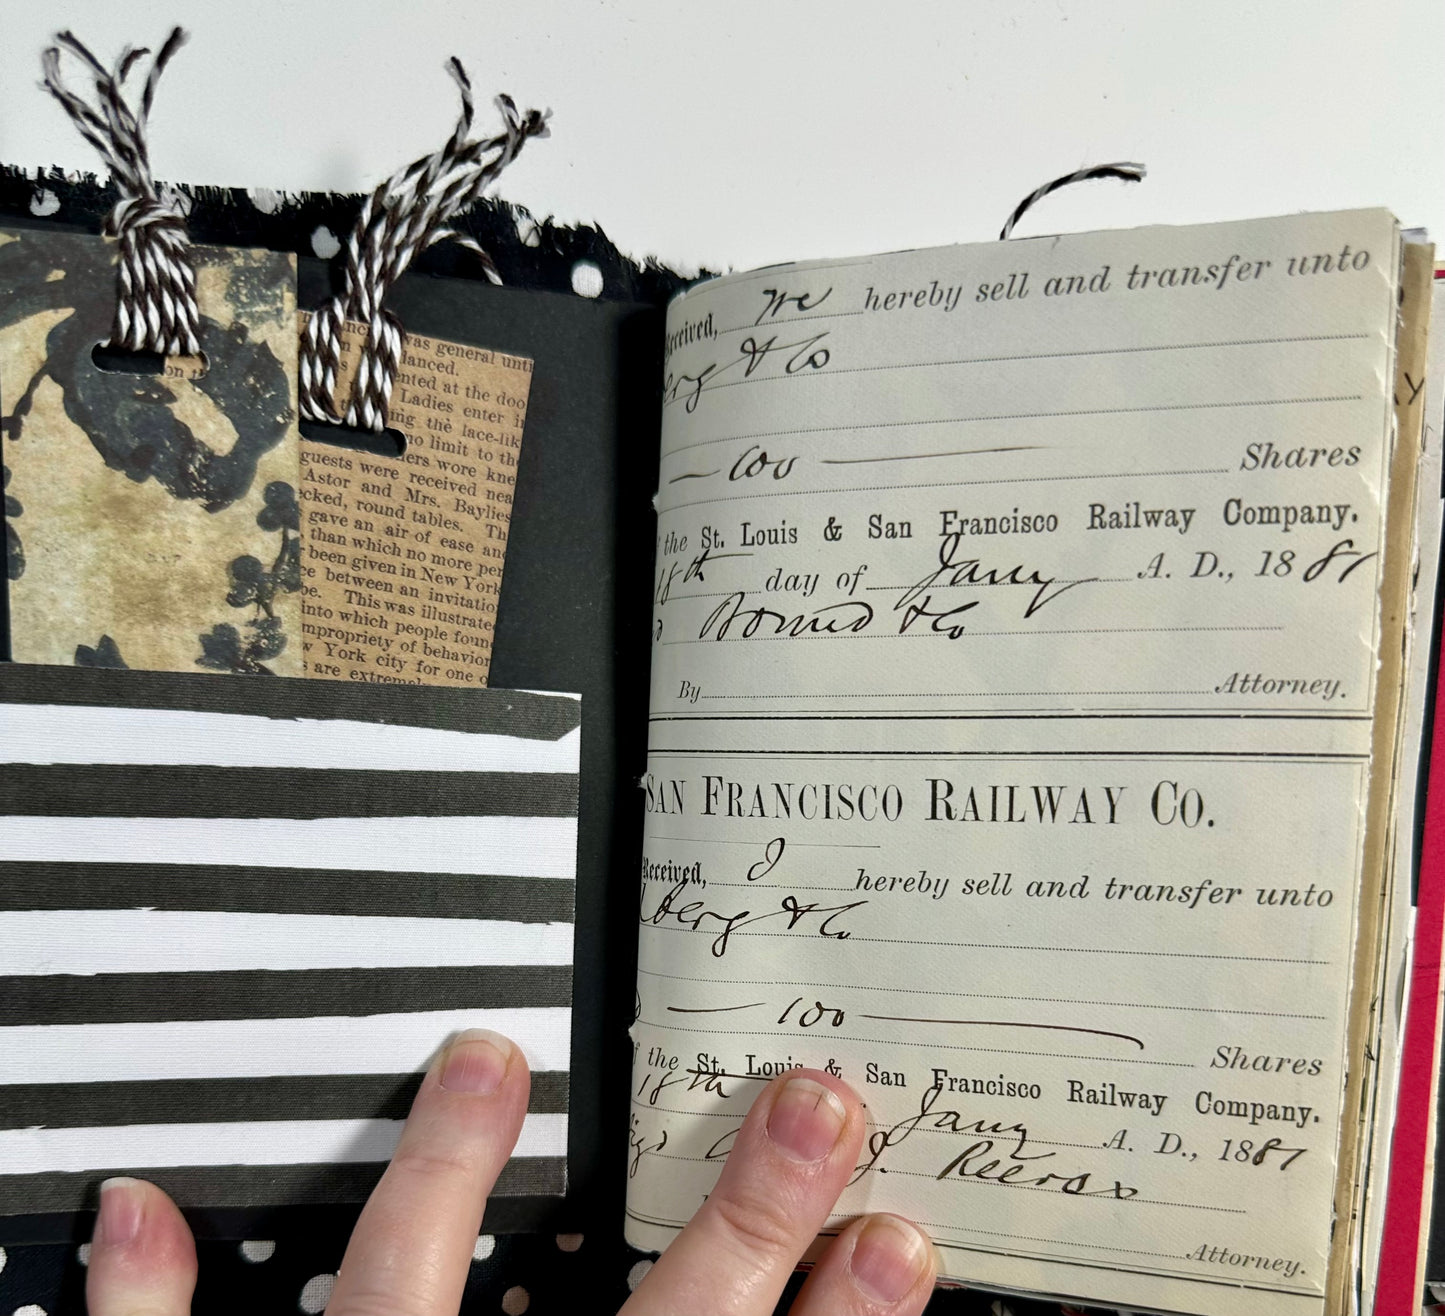 on th
was general until
lanced.
ented at the doo
Ladies enter i
ing the lace-lik
no limit to the
ers wore kne
guests were received nea
Astor and Mrs. Baylies
cked, round tables. Th
gave an air of ease and
than which no more per
been given in New York
ce between an invitatio
be. This was illustrate
into which people foun
mpropriety of behavior
w York city for one o
s are extremel
Received, We hereby sell and transfer unto
erg & Co
— 100 — Shares
the St. Louis & San Francisco Railway Company.
18th day of Jany A. D., 1881
& Co
By Attorney.
SAN FRANCISCO RAILWAY CO.
Received, I hereby sell and transfer unto
berg & Co
— 100 — Shares
f the St. Louis & San Francisco Railway Company.
18th Jany A. D., 1881
J.
Attorney.